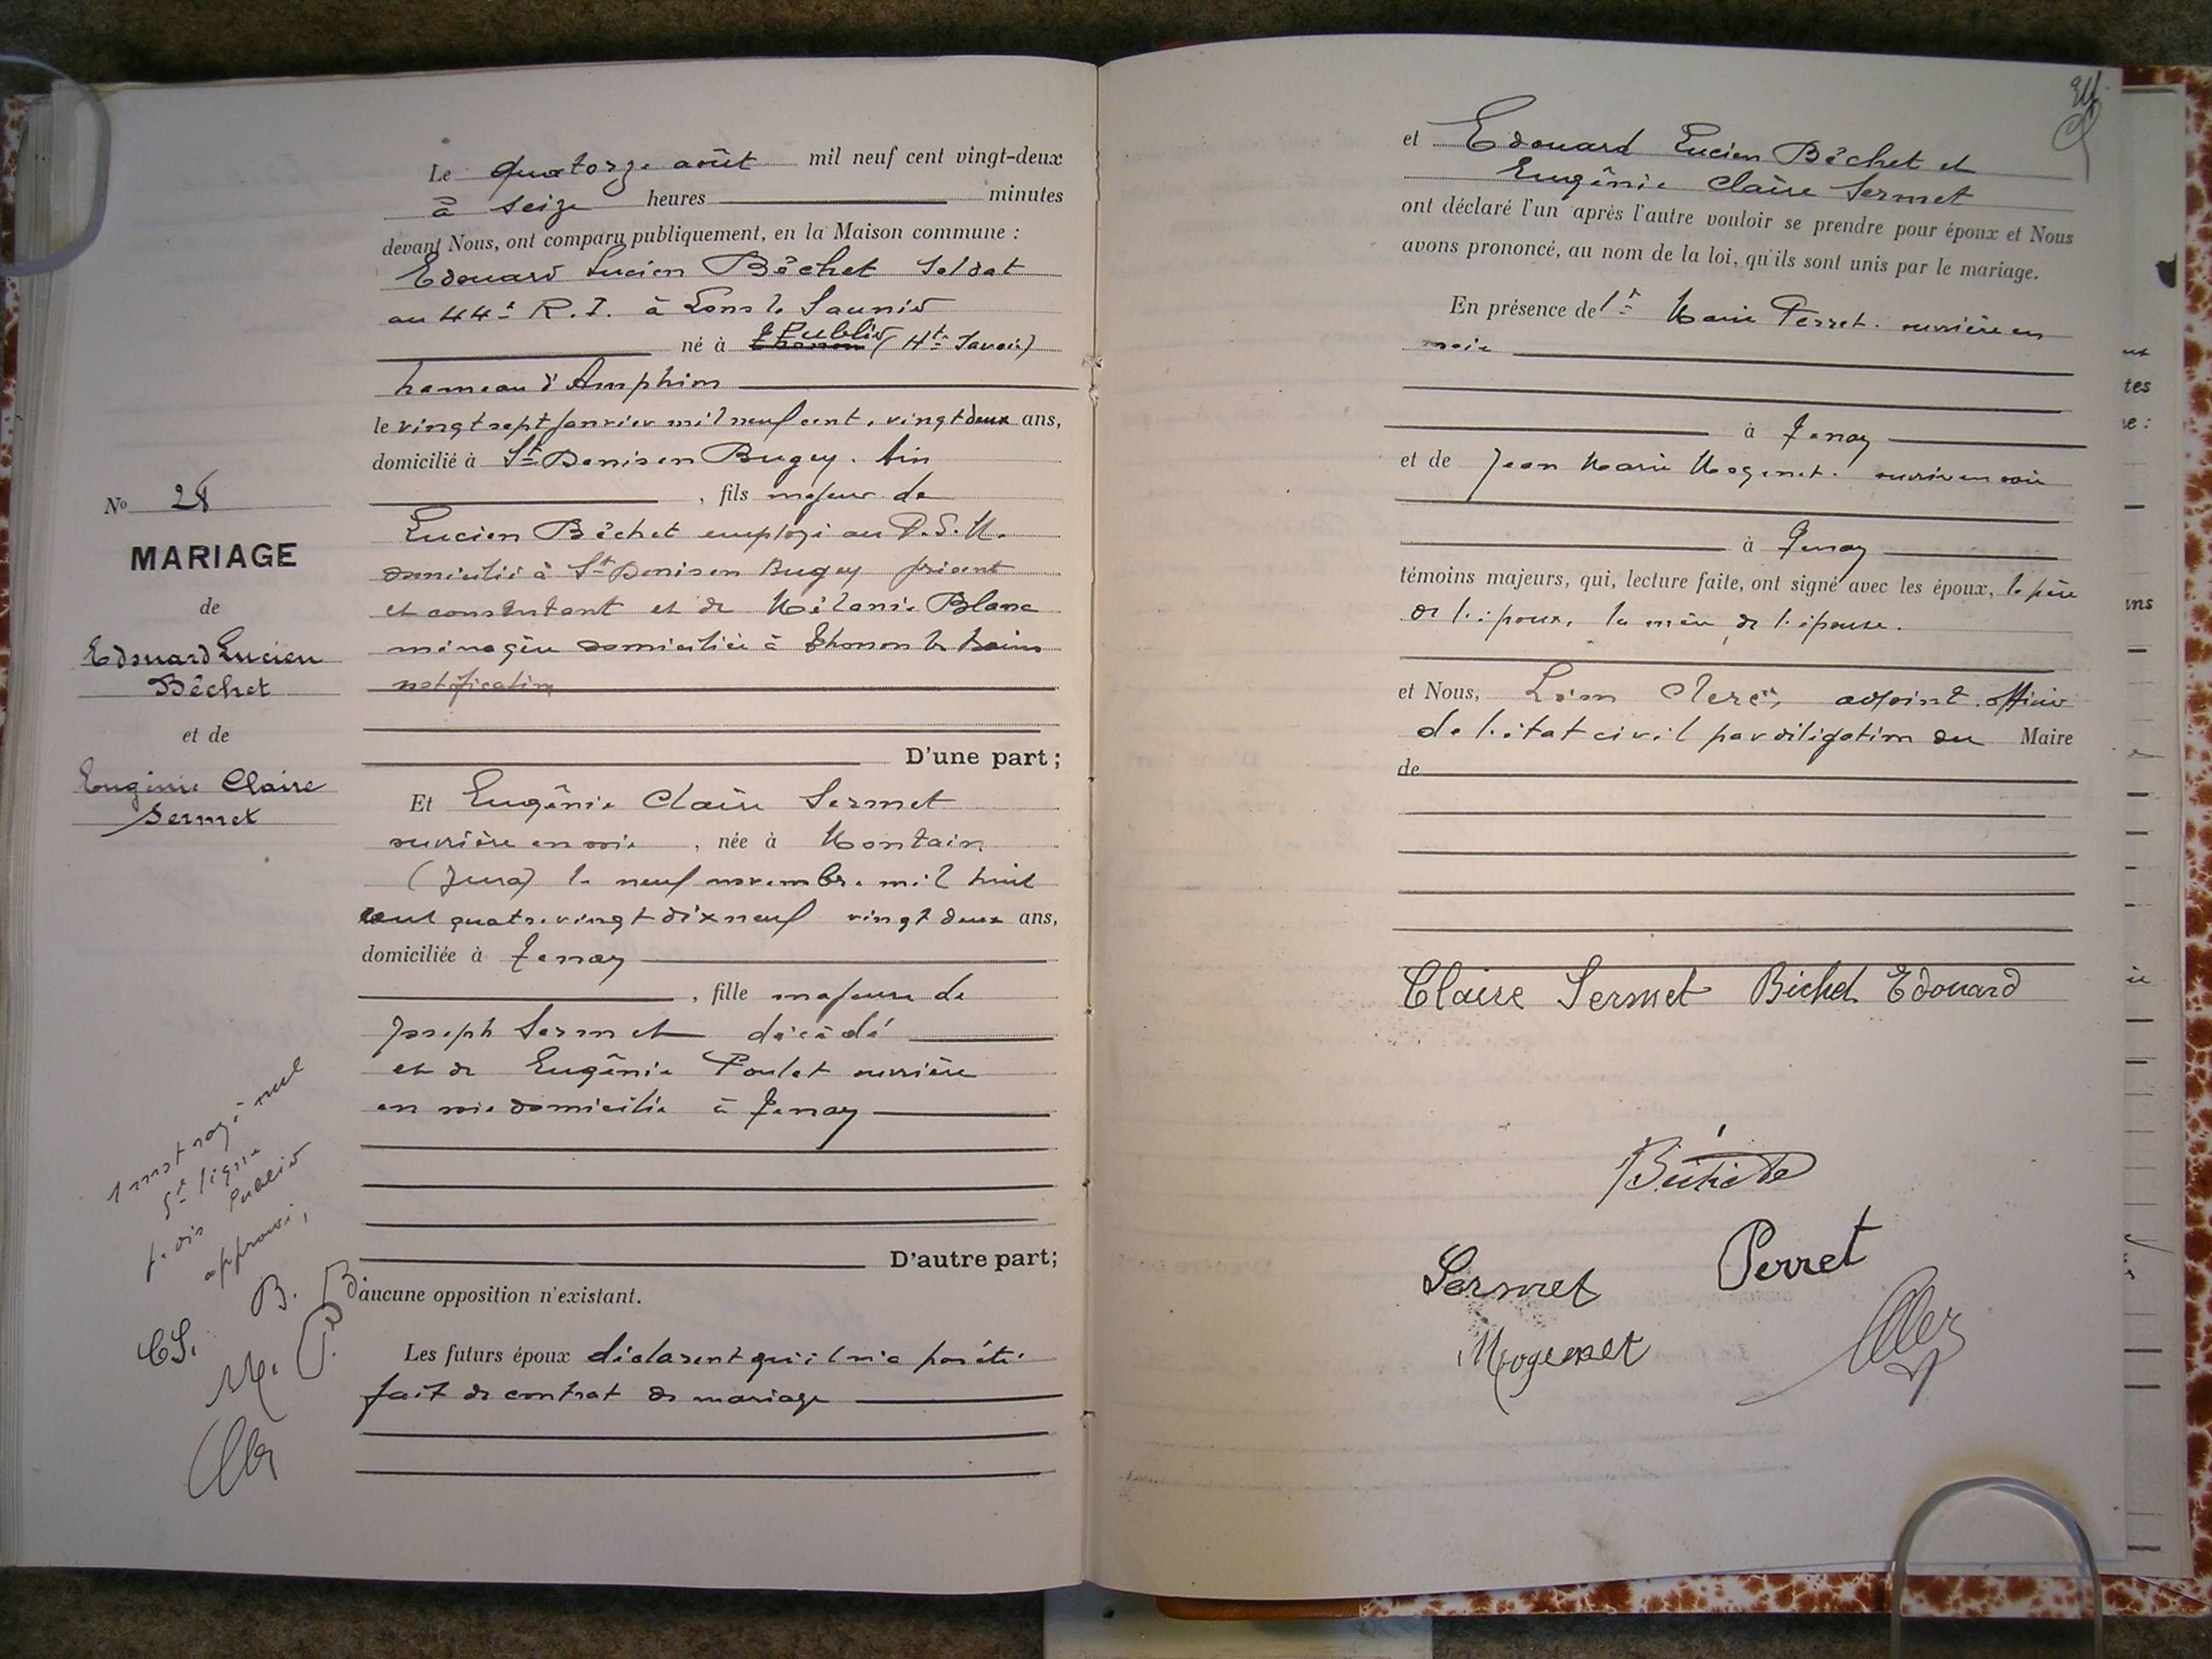 Le quatorze août mil neuf cent vingt-deux
à seize heures minutes
devant Nous, ont comparu publiquement, en la Maison commune :
Edouard Lucien Bêchet Soldat
au 44e R.I. à Lons le Saunier
né à Thonon Publier (Hte Savoie)
hameau d'Amphion
le vingt sept janvier mil neuf cent, vingt deux ans,
domicilié à St Denis en Bugey. Ain
, fils majeur de
Lucien Bêchet employé au P.L.M.
domicilié à St Denis en Bugey présent
et consentant et de Mélanie Blanc
ménagère domiciliée à Thonon les bains
notification
D'une part ;
No 28
MARIAGE
de
Edouard Lucien
Bêchet
et de
Eugénie Claire
Sermet
Et Eugénie Claire Sermet
ouvrière en soie, née à Montain
(Jura) le neuf novembre mil huit
cent quatre vingt dix neuf vingt deux ans,
domiciliée à Tenay
, fille majeure de
Joseph Sermet décédé
et de Eugénie Poulet ouvrière
en soie domicilié à Tenay
D'autre part;
aucune opposition n'existant.
Les futurs époux déclarent qu'il n'a pas été
fait de contrat de mariage
1 mot rayé nul
5e ligne
Publier
approuvé,
B. B
CS.
M. P.
et Edouard Lucien Bêchet et
Eugénie Claire Sermet
ont déclaré l'un après l'autre vouloir se prendre pour époux et Nous
avons prononcé, au nom de la loi, qu'ils sont unis par le mariage.
En présence de Marie Perret. ouvrière en
soie
à Tenay
et de Jean Marie Mogenet. ouvrier en soie
à Tenay
témoins majeurs, qui, lecture faite, ont signé avec les époux, le père
de l'époux, la mère de l'épouse.
et Nous, Léon Clerc, adjoint officier
de l'état civil par délégation du Maire
de
Claire Sermet Béchet Edouard
Sermet Perret
Mogenet